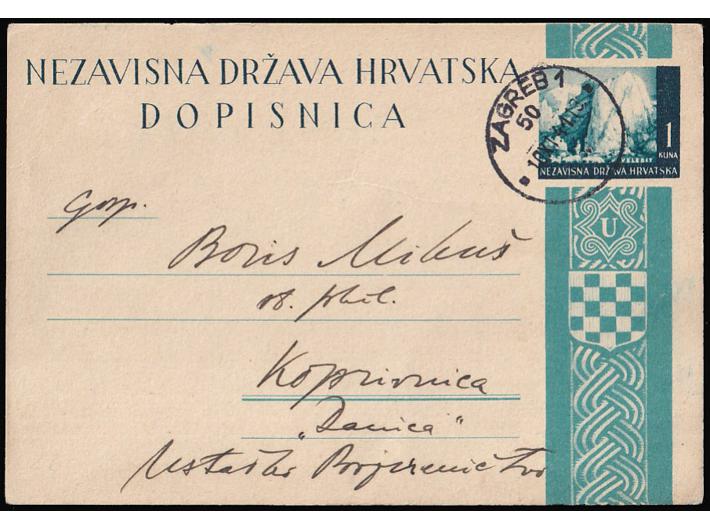 NEZAVISNA DRŽAVA HRVATSKA
DOPISNICA
ZAGREB 1
50
VELEBIT
1
KUNA
NEZAVISNA DRŽAVA HRVATSKA
U
Gosp.
Boris Mikuš
phil.
Koprivnica
"Danica"